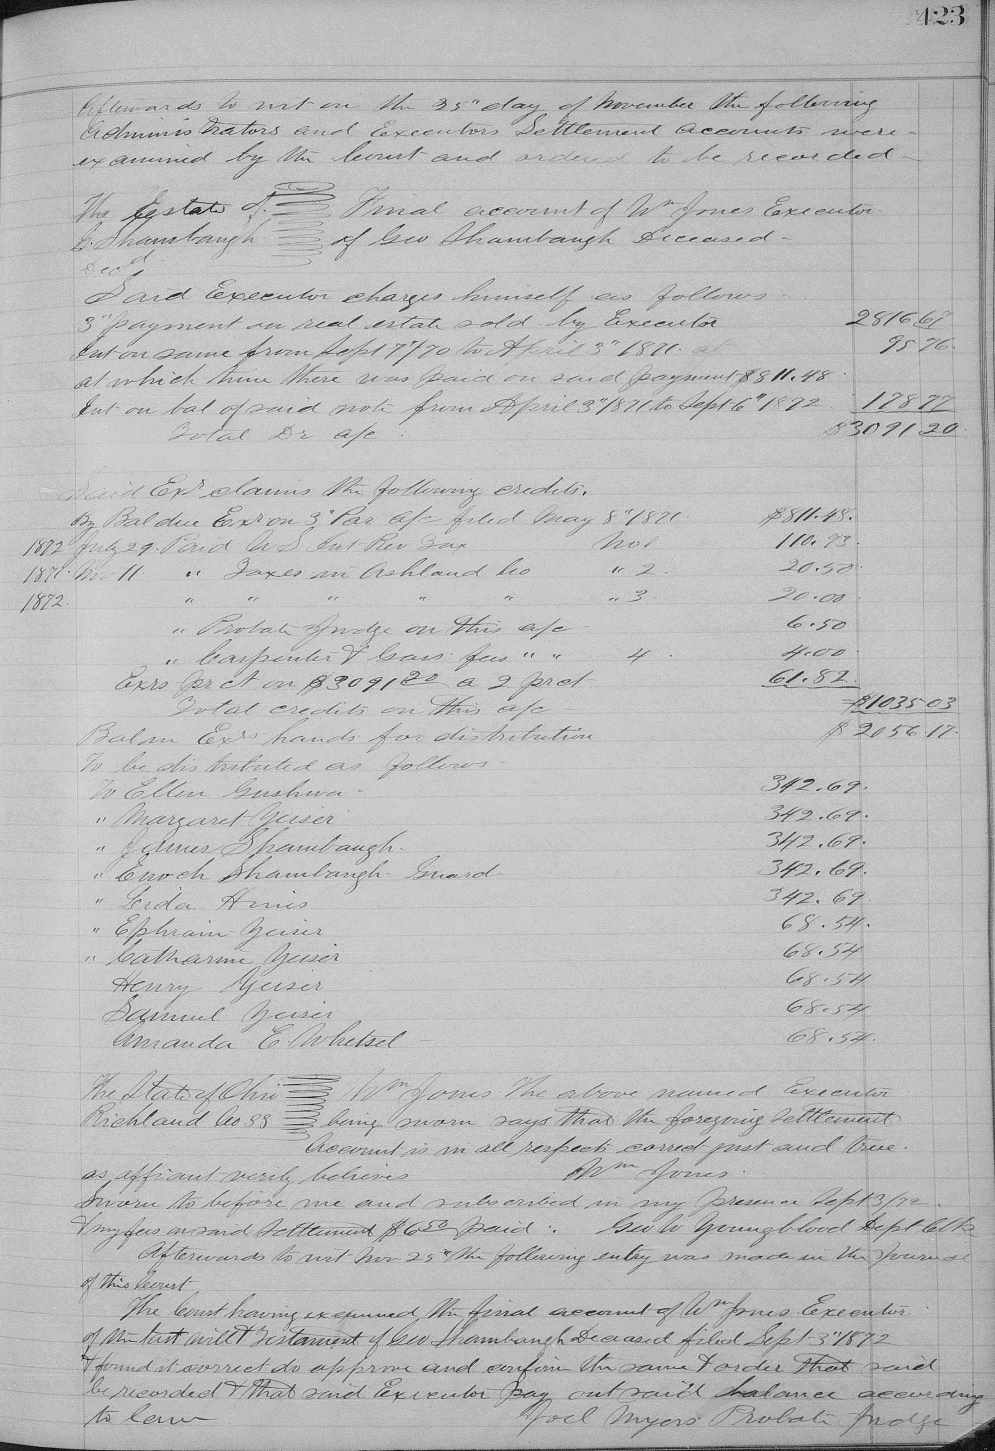 423
Afterwards to wit on the 25" day of November the following
Administrators and Executors Settlement accounts were
examined by the Court and ordered to be recorded
The Estate of Final account of Wm Jones Executor
G. Shambaugh of Geo Shambaugh Deceased
Decd
Said Executor charges himself as follows
3" payment on real estate sold by Executor 2816 67
Int on same from Sept 7"/70 to April 3" 1871 95 76
at which time there was paid on said payment $811.48
Int on bal of said note from April 3" 1871 to Sept 6" 1872 178 77
Total Dr a/c $3091 20
Said Exr claims the following credits.
By Bal due Exr on 3" Par a/c filed May 8" 1871 $811.48.
1872 July 29. Paid U S Int Rev Tax No 1 110.73
1871 Nov 11 " Taxes in Ashland Co " 2. 20.50
1872. " " " " " " 3 20.00
" Probate Judge on this a/c 6.50
" Carpenter & Gass fees " " 4. 4.00
Exrs pr ct on $3091 20 a 2 pr ct 61.82
Total credits on this a/c $1035 03
Bal in Exrs hands for distribution $ 2056.17.
To be distributed as follows
To Ellen Gushwa 342.69.
" Margaret Yeiser 342.69.
" James Shambaugh. 342.69.
" Enoch Shambaugh Guard 342.69.
" Lida Hines 342.69
" Ephraim Yeiser 68.54.
" Catharine Yeiser 68.54
Henry Yeiser 68.54
Samuel Yeiser 68.54
Amanda E Whetsel 68.54.
The State of Ohio Wm Jones The above named Executor
Richland Co SS being sworn says that the foregoing settlement
account is in all respects correct just and true.
as affiant verily believes Wm Jones.
Sworn to before me and subscribed in my presence Sept 3/72.
& my fees on said settlement $6 50 paid. Geo W Youngblood Dept Clk
Afterwards to wit Nov 25" the following entry was made in the Journal
of this Court
The Court having examined the final account of Wm Jones Executor
of the last will & Testament of Geo Shambaugh Deceased filed Sept 3" 1872
& found it correct do approve and confirm the same & order that said
be recorded & that said Executor pay out said balance according
to law Joel Myers Probate Judge